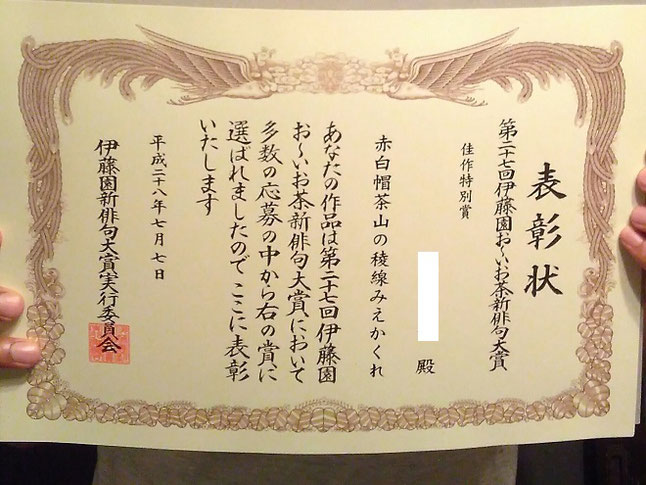 表彰状
第二十七回伊藤園お〜いお茶新俳句大賞
佳作特別賞
殿
赤白帽茶山の稜線みえかくれ
あなたの作品は第二十七回伊藤園
お〜いお茶新俳句大賞において
多数の応募の中から右の賞に
選ばれましたのでここに表彰
いたします
平成二十八年七月七日
伊藤園新俳句大賞実行委員会